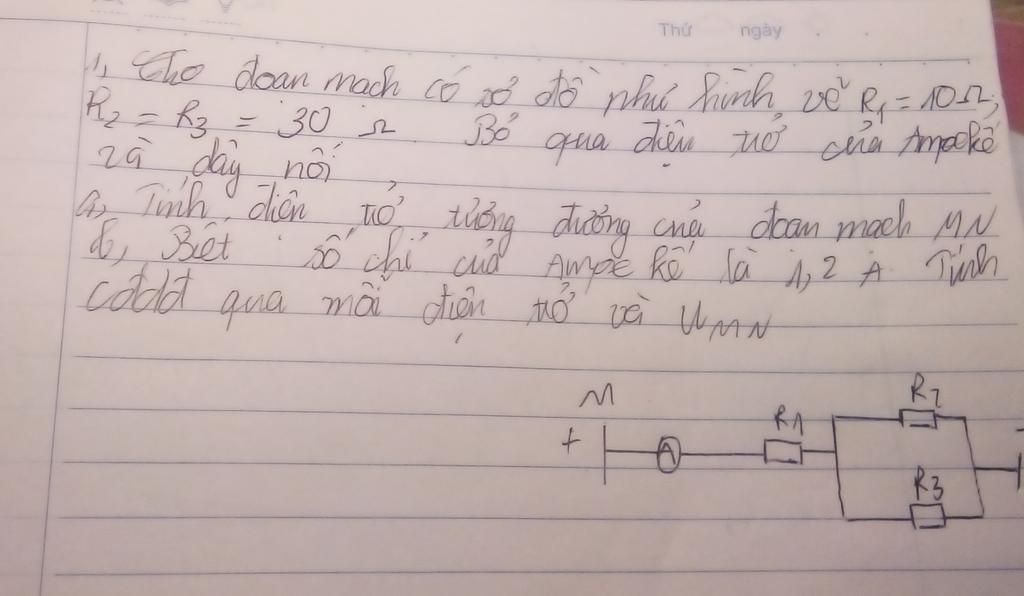 Thứ ngày
1, Cho đoan mach có sơ đồ như hình vẽ R1 = 10Ω;
R2 = R3 = 30 Ω Bỏ qua điện trở của Ampe kế
và dây nối
a, Tính điên trở tương đương của đoan mach MN
b, Biêt số chỉ của Ampe kế là 1,2 A Tính
cđdđ qua mỗi điện trở và UMN
M
+
A
R1
R2
R3